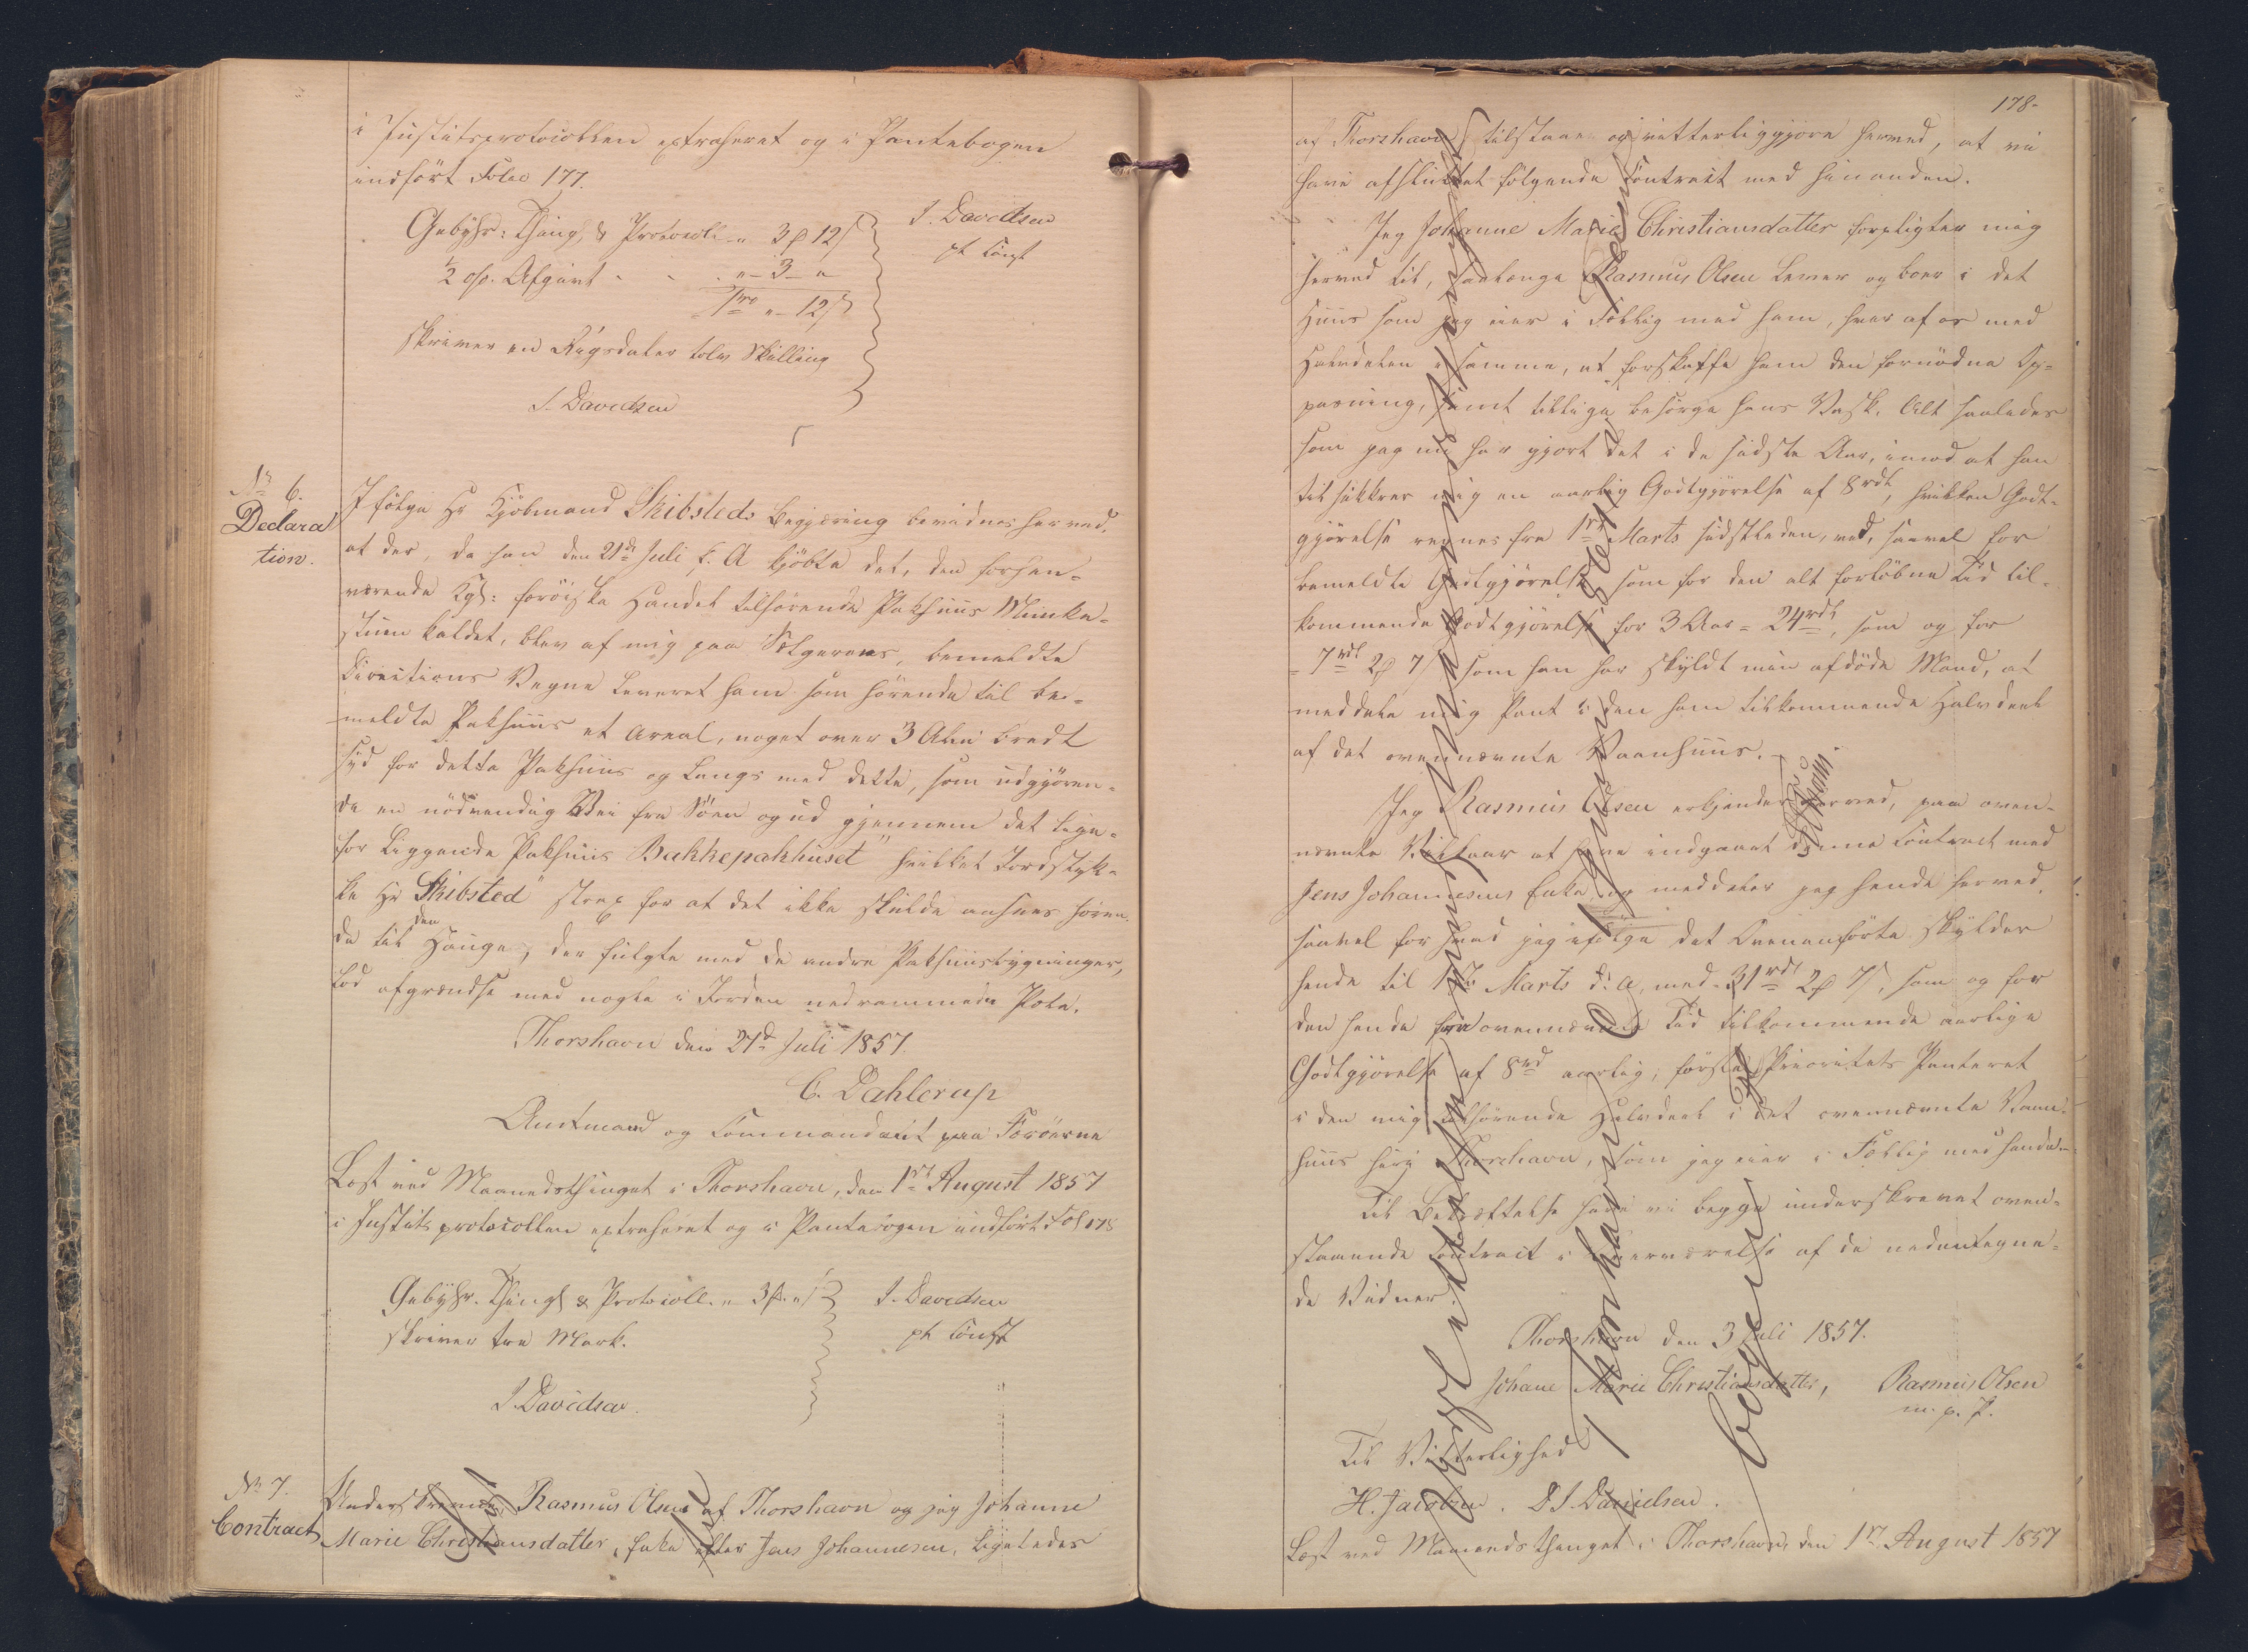 i Justitsprotocollen extraheret og i Pantebogen
indfört Folio 177.
Gebyhr: Thingl. & Protocoll. " 3 ₰ 12 ſ
½ op. Afgivt " - 3 - "
1 rd " - 12 ſ
skriver en Rigsdaler tolv Skilling
J. Davidsen
J. Davidsen
pt const
No 6.
Declara
tion.
Ifölge Hr Kjöbmand Skibsteds Begjæring bevidnes herved,
at der, da han den 21de Juli d. A kjöbte det, den forhen-
værende Kgl: færöiske Handel tilhörende Pakhuus Munke-
stuen kaldet, blev af mig paa Sælgerens, bemeldte
Directions Vegne leveret ham som hörende til be-
meldte Pakhuus et Areal, noget over 3 Alen bredt
syd for dette Pakhuus og langs med dette, som udgjören-
de en nödvendig Vei fra Söen og ud gjennem det lige-
for liggende Pakhuus "Bakkepakhuset" hvilket Jordstyk-
ke Hr Skibsted strax for at det ikke skulde ansees hören-
de til den Hauge, der fulgte med de andre Pakhuusbygninger,
lod afgrændse med nogle i Jorden nedrammede Pæle.
Thorshavn den 21d Juli 1857.
C. Dahlerup
Amtmand og Commandant paa Færöerne
Læst ved Maanedsthinget i Thorshavn, den 1ste August 1857
i Justitsprotocollen extraheret og i Pantebogen indfört Fol 178
Gebyhr. Thingl & Protocoll. " 3 ₰ " ſ
skriver tre Mark.
J. Davidsen.
J. Davidsen
pt const
No 7.
Contract
Underskrevne Rasmus Olsen af Thorshavn og jeg Johanne
Marie Christiansdatter, Enke efter Jens Johannesen, ligeledes
178-
af Thorshavn tilstaae og vitterliggjöre herved, at vi
have afsluttet fölgende Contract med hinanden.
Jeg Johanne Marie Christiansdatter forpligter mig
herved til, saalænge Rasmus Olsen lever og boer i det
Huus som jeg eier i Fællig med ham, hver af os med
Halvdelen i samme, at forskaffe ham den fornödne Op-
pasning, samt tillige besörge hans Vask. Alt saaledes
som jeg nu har gjort det i de sidste Aar, imod at han
tilsikkrer mig en aarlig Godtgjörelse af 8 rdl, hvilken Godt-
gjörelse regnes fra 1ste Marts sidstleden, ved, saavel for
bemeldte Godtgjörelse som for den alt forlöbne Tid til-
kommende Godtgjörelse for 3 Aar = 24 rdl, som og for
= 7 rdl 2 ₰ 7 ſ som han har skyldt min afdöde Mand, at
meddele mig Pant i den ham tilkommende Halvdeel
af det ovennævnte Vaanhuus. -
Jeg Rasmus Olsen erkjender herved, paa oven-
nævnte Vilkaar at have indgaaet denne Contract med
Jens Johannesens Enke og meddeler jeg hende herved,
saavel for hvad jeg ifölge det Ovenanförte skylder
hende til 1ste Marts d: A, med = 31 rdl 2 ₰ 7 ſ, som og for
den hende for ovennævnte Tid tilkommende aarlige
Godtgjörelse af 8 rd aarlig, förste Prioritets Panteret
i den mig tilhörende Halvdeel i det ovennævnte Vaan-
huus her i Thorshavn, som jeg eier i Fællig med hende. -
Til Bekræftelse have vi begge underskrevet oven-
staaende Contract i Overværelse af de nedentegne-
de Vidner.
Thorshavn den 3 Juli 1857.
Johane Marie Christiansdatter, Rasmus Olsen
m. p. P.
Til Vitterlighed
H. Jacobsen. D J. Danielsen.
Læst ved Maanedsthinget i Thorshavn, den 1ste August 1857